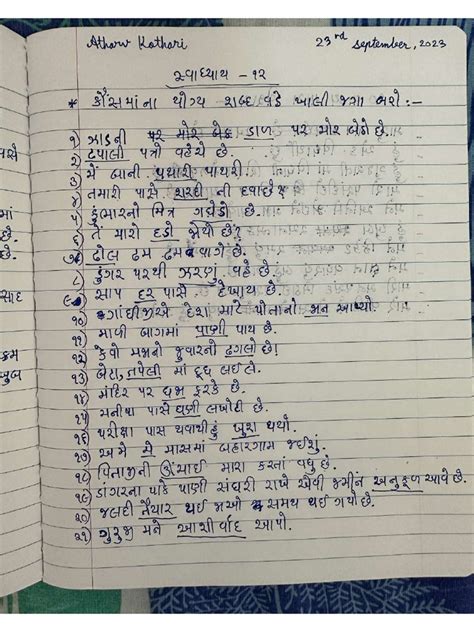 Atharv Kothari 23rd September, 2023
સ્વાધ્યાય - ૧૨
* કૌંસમાંના યોગ્ય શબ્દ વડે ખાલી જગા ભરો :-
૧) ઝાડની ડાળ પર મોર બેઠો છે.
૨) ટપાલી પત્રો વહેંચે છે.
૩) મેં બાની પથારી પાથરી
૪) તમારી પાસે શરદી ની દવા છે
૫) કુંભારનો મિત્ર ગધેડો છે.
૬) તેં મારો દડો જોયો છે?
૭) ઢોલ ઢમ ઢમ વાગે છે.
૮) ડુંગર પરથી ઝરણું વહે છે.
૯) સાપ દર પાસે દેખાય છે.
૧૦) ગાંધીજીએ દેશ માટે પોતાનો આપ્યો.
૧૧) માળી બાગમાં પાણી પાય છે.
૧૨) કેવો મજાનો જુવારનો ઢગલો છે!
૧૩) બેટા, તપેલી માં દૂધ લઈ લે.
૧૪) મંદિર પર ધજા ફરકે છે.
૧૫) મનીષા પાસે ઘણી લખોટી છે.
૧૬) પરીક્ષા પાસ થવાથી હું ખુશ થયો.
૧૭) અમે મે માસમાં બહારગામ જઈશું.
૧૮) પિતાજીની ઊંચાઈ મારા કરતાં વધુ છે.
૧૯) ડાંગરના પાકે પાણી સંઘરી રાખે એવી જમીન અનુકૂળ આવે છે.
૨૦) જલદી તૈયાર થઈ જાઓ સમય થઈ ગયો છે.
૨૧) ગુરુજી મને આશીર્વાદ આપો.